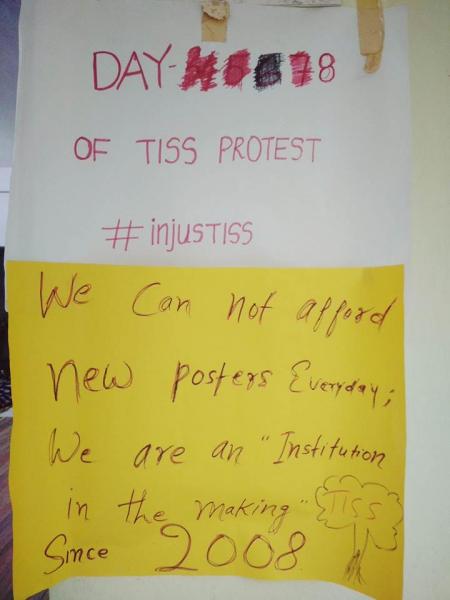 DAY- 8
OF TISS PROTEST
#injusTISS
We Can not afford
New posters Everyday;
We are an "Institution
in the making" TISS
Since 2008